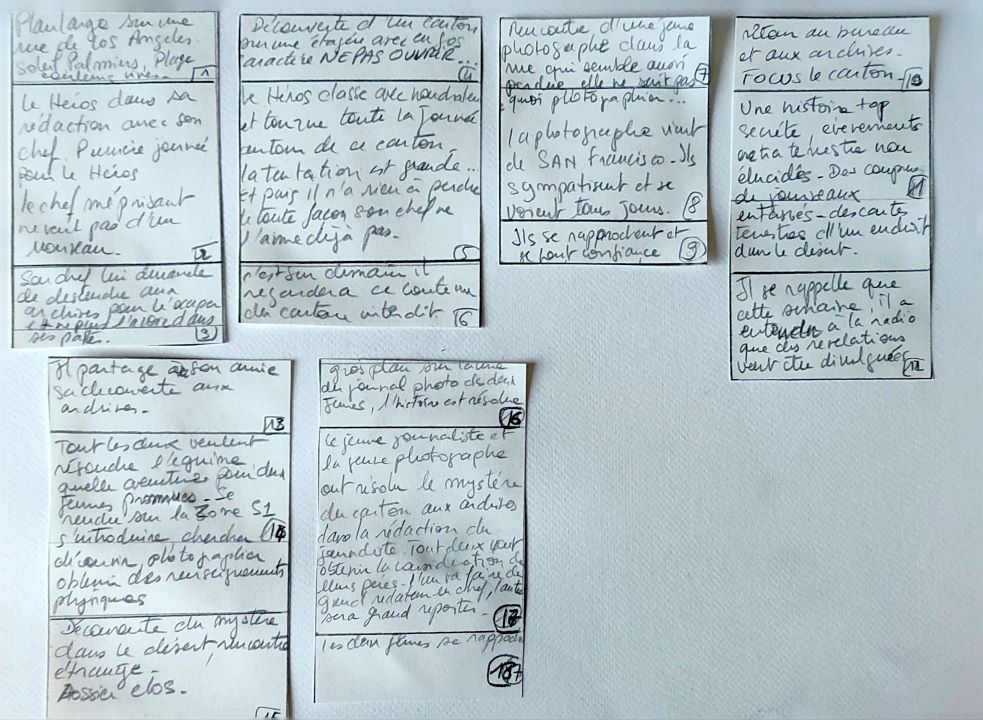 Plan large sur une
rue de Los Angeles.
soleil Palmiers, Plage
couleurs vives. 1
Le Héros dans sa
rédaction avec son
chef. Premiere journeé
pour le Héros
le chef méprisant
ne veut pas d'un
nouveau. 2
Son chef lui demande
de descendre aux
archives pour l'occuper
et ne plus l'avoir dans
ses pattes. 3
Découverte d'un carton
sur une étagère avec en gos
caractère NE PAS OUVRIR... 4
Le Héros classe avec
et tourne toute la journeé
autour de ce carton.
la tentation est grande...
Et puis il n'a rien à perdre
de toute façon son chef ne
l'aime déjà pas. 5
c'est sur demain il
regardera ce contenu
du carton interdit. 6
Rencontre d'une jeune
photographe dans la
rue qui semble aussi
perdue elle ne sait pas 7
quoi photographier...
la photographe vient
de SAN Francisco. Ils
sympatisent et se
voient tous jours. 8
Ils se rapprochent et
se font confiance 9
retour au bureau
et aux archives.
FOCUS le carton. 10
Une histoire top
secrète, évènements
extra terrestre non
élucidés - Des coupures
de journeaux 11
entassés - des cartes
terrestres d'un endroit
dans le désert.
Il se rappelle que
cette semaine, il a
entendu à la radio
que des revelations
vont être divulguées 12
Il partage à son amie
sa découverte aux
archives. 13
Tout les deux veulent
résoudre l'eguime
quelle aventure pour deux
jeunes - Se
rendre sur la Zone 51
s'introduire, chercher 14
découvrir, photographier
obtenir des renseignements
physiques
Découverte du mystère
dans le désert, rencontre
étrange -
Dossier clos. 15
gros plan sur la une
du journal photo de deux
jeunes, l'histoire est résolue 16
le jeune journaliste et
la jeune photographe
ont résolu le mystère
du carton aux archives
dans la rédaction du
journaliste. Tout deux vont
obtenir la considération de
leurs pères. l'un va faire de
grand rédateur en chef, l'autre
sera grand reporter. 17
les deux jeunes se rapproch